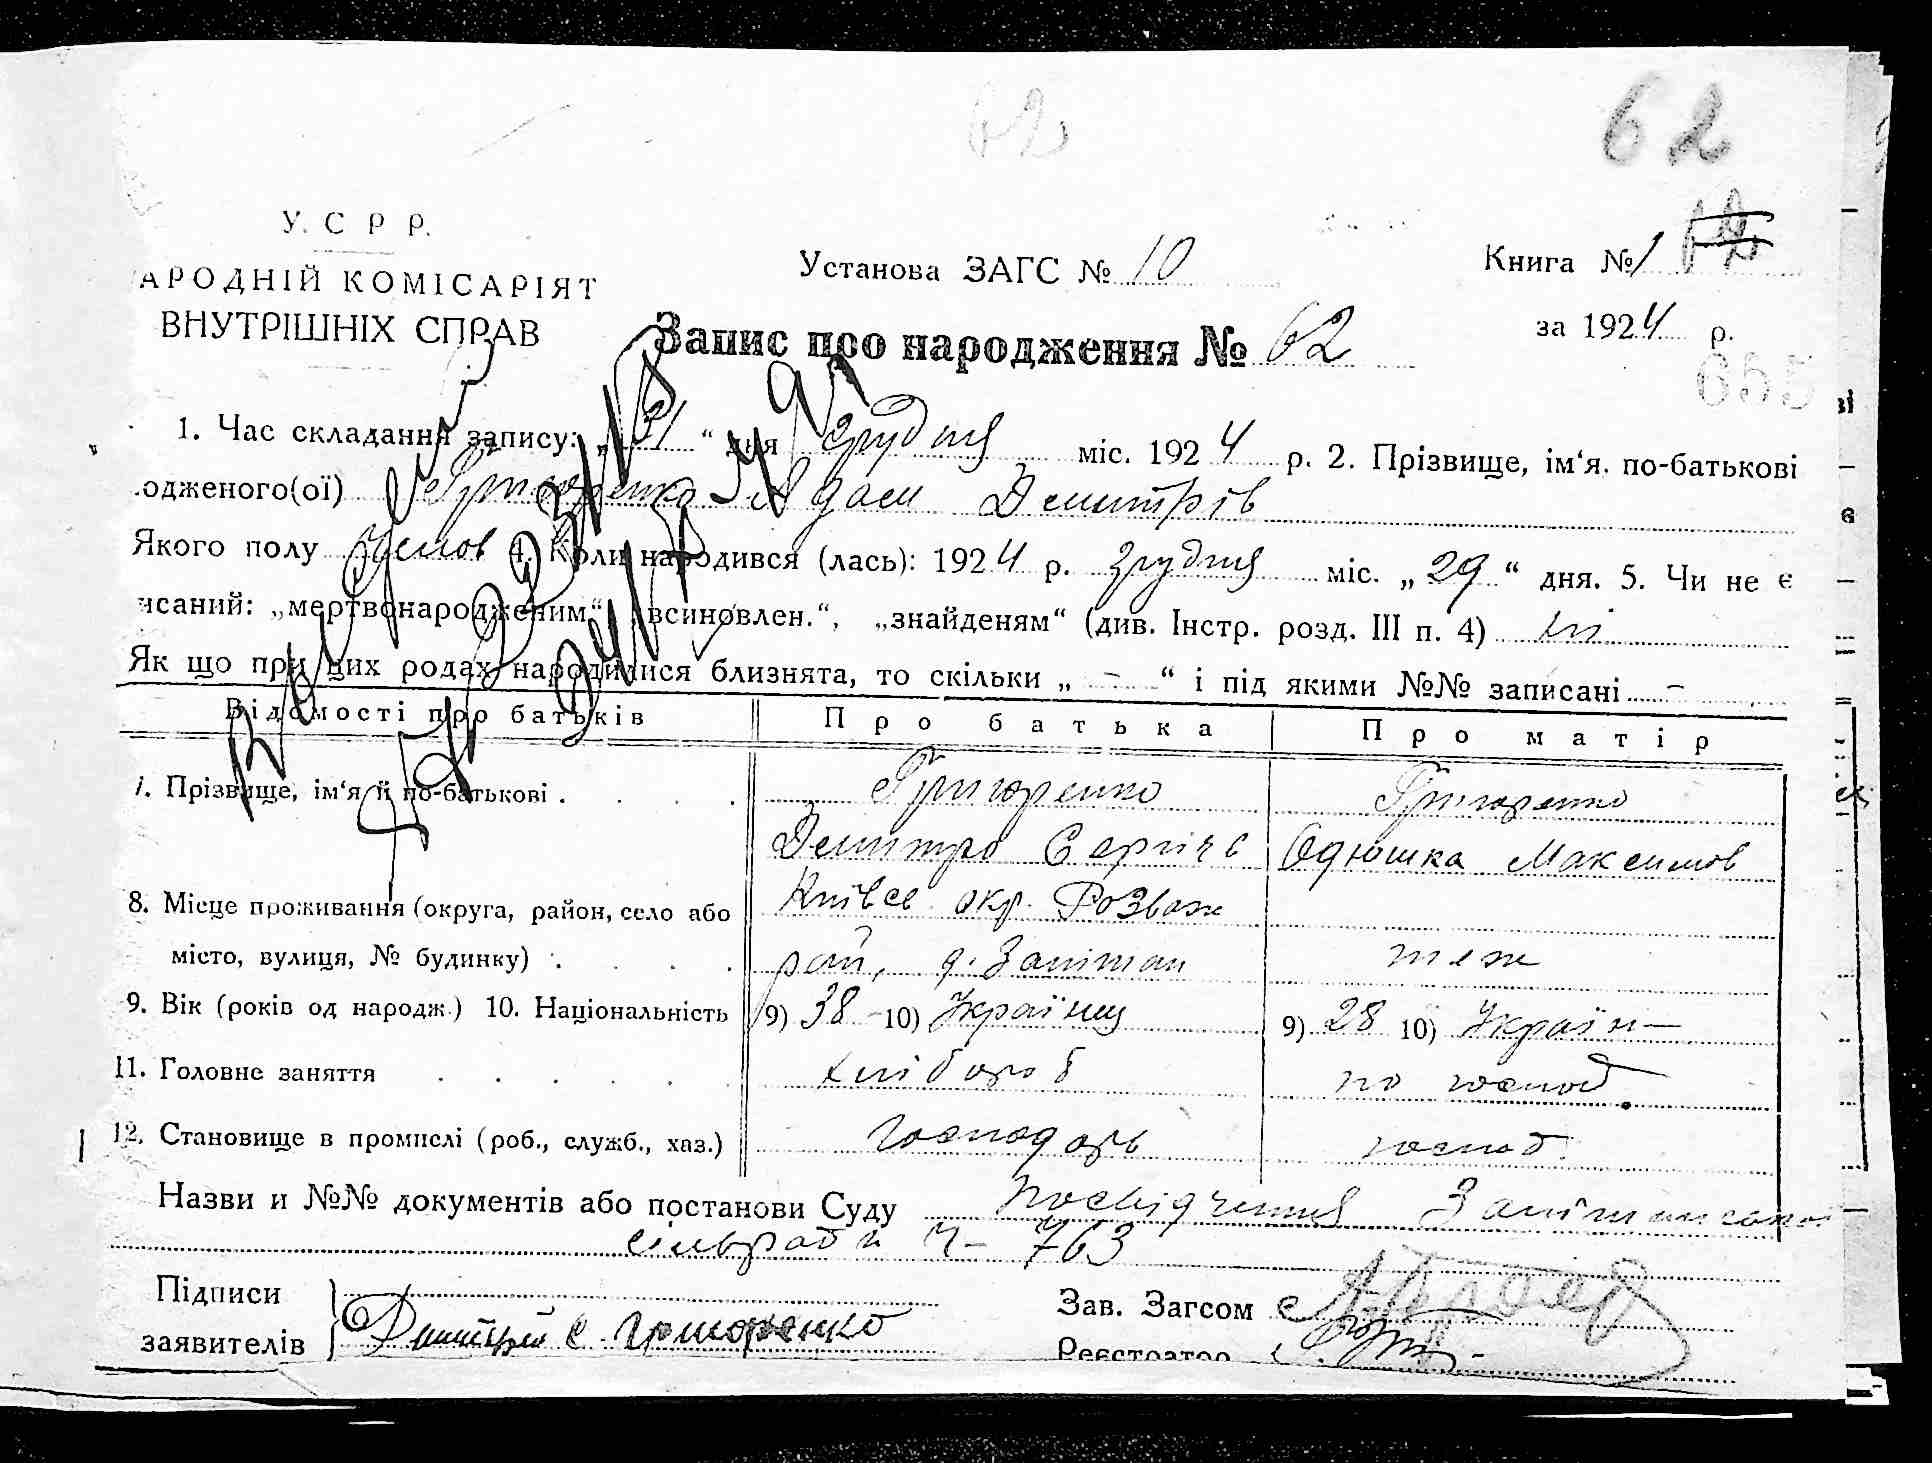 62
62
У. С Р Р.
АРОДНІЙ КОМІСАРІЯТ
ВНУТРІШНІХ СПРАВ
Установа ЗАГС № 10
Книга № 1
за 1924 р.
Запис про народження № 62
655
1. Час складання запису: „31“ дня грудня міс. 1924 р. 2. Прізвище, ім‘я. по-батькові
одженого(ої) Григоренко Адам Дмитрів
Якого полу 4. Коли народився (лась): 1924 р. грудня міс. „29“ дня. 5. Чи не є
исаний: „мертвонародженим“, „всиновлен.“, „знайденям“ (див. Інстр. розд. III п. 4) ні
Як що при цих родах народилися близнята, то скільки „ - “ і під якими №№ записані -
Відомості про батьків Про батька Про матір
7. Прізвище, ім‘я й по-батькові . . . . Григоренко Григоренко
Дмитро Сергіїв Одюшка Максимов
8. Місце проживання (округа, район, село або Київсь окр. Розваж
місто, вулиця, № будинку) . . . . рай, теж
9. Вік (років од народж.) 10. Національність 9) 38 10) Українец 9) 28 10) Україн—
11. Головне заняття . . . . . хлібороб по господ.
12. Становище в промислі (роб., служб., хаз.) господарь господ.
Назви и №№ документів або постанови Суду посвідчення
сільради Ч– 763
Підписи
заявителів Дмитрий С. Григоренко
Зав. Загсом
Реєстратор